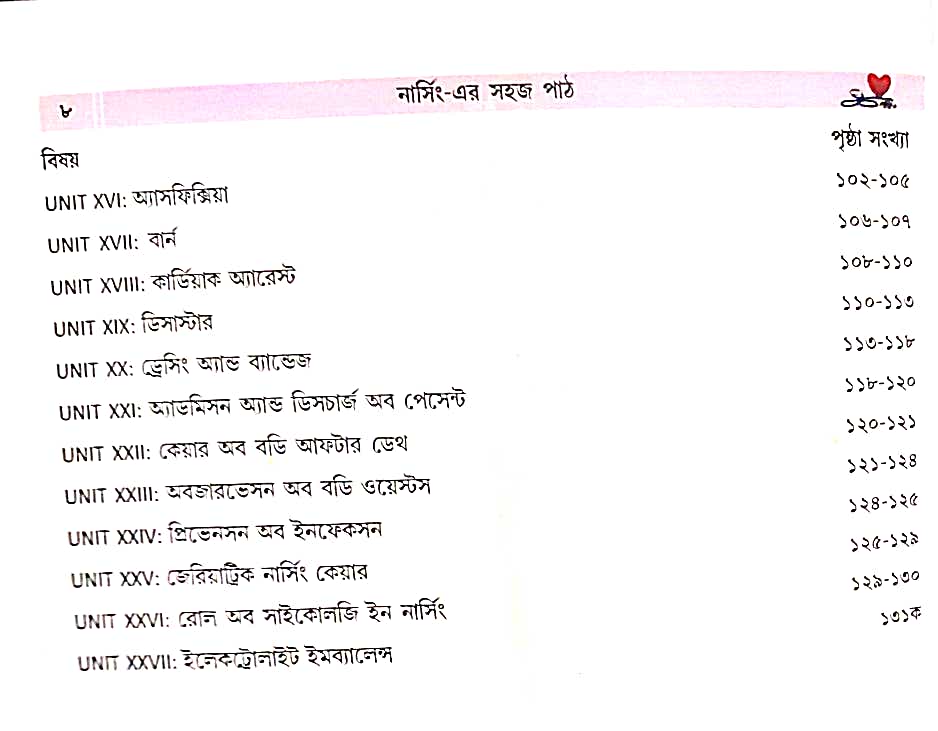 ৮ নার্সিং-এর সহজ পাঠ
বিষয় পৃষ্ঠা সংখ্যা
UNIT XVI: অ্যাসফিক্সিয়া ১০২-১০৫
UNIT XVII: বার্ন ১০৬-১০৭
UNIT XVIII: কার্ডিয়াক অ্যারেস্ট ১০৮-১১০
UNIT XIX: ডিসাস্টার ১১০-১১৩
UNIT XX: ড্রেসিং অ্যান্ড ব্যান্ডেজ ১১৩-১১৮
UNIT XXI: অ্যাডমিসন অ্যান্ড ডিসচার্জ অব পেসেন্ট ১১৮-১২০
UNIT XXII: কেয়ার অব বডি আফটার ডেথ ১২০-১২১
UNIT XXIII: অবজারভেসন অব বডি ওয়েস্টস ১২১-১২৪
UNIT XXIV: প্রিভেনসন অব ইনফেকসন ১২৪-১২৫
UNIT XXV: জেরিয়াট্রিক নার্সিং কেয়ার ১২৫-১২৯
UNIT XXVI: রোল অব সাইকোলজি ইন নার্সিং ১২৯-১৩০
UNIT XXVII: ইলেকট্রোলাইট ইমব্যালেন্স ১৩১ক